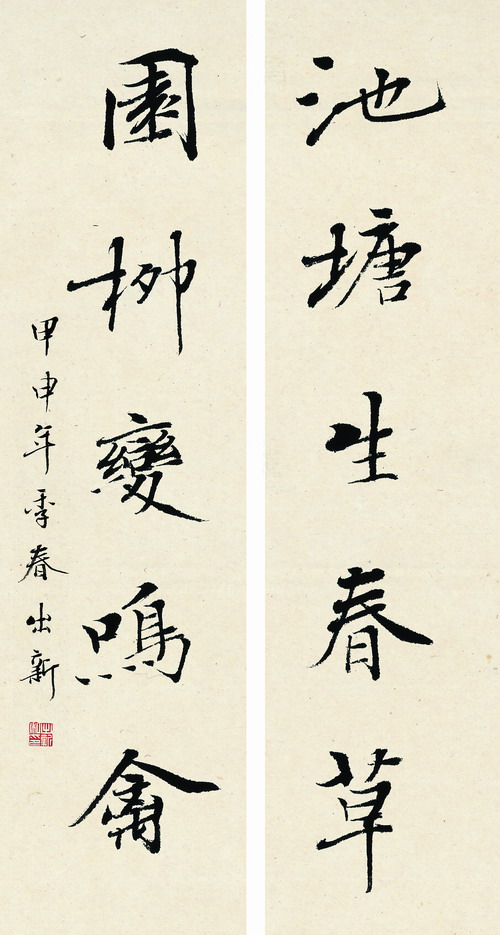 池塘生春草
園柳變鳴禽
甲申年季春出新